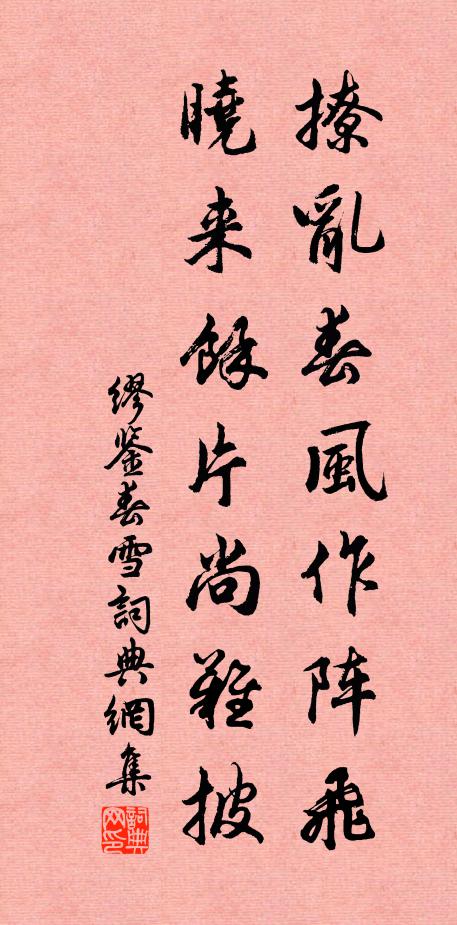 撩亂春風作阵飛
曉来餘片尚難披
缪鉴春雪詞典網集
詞典网印